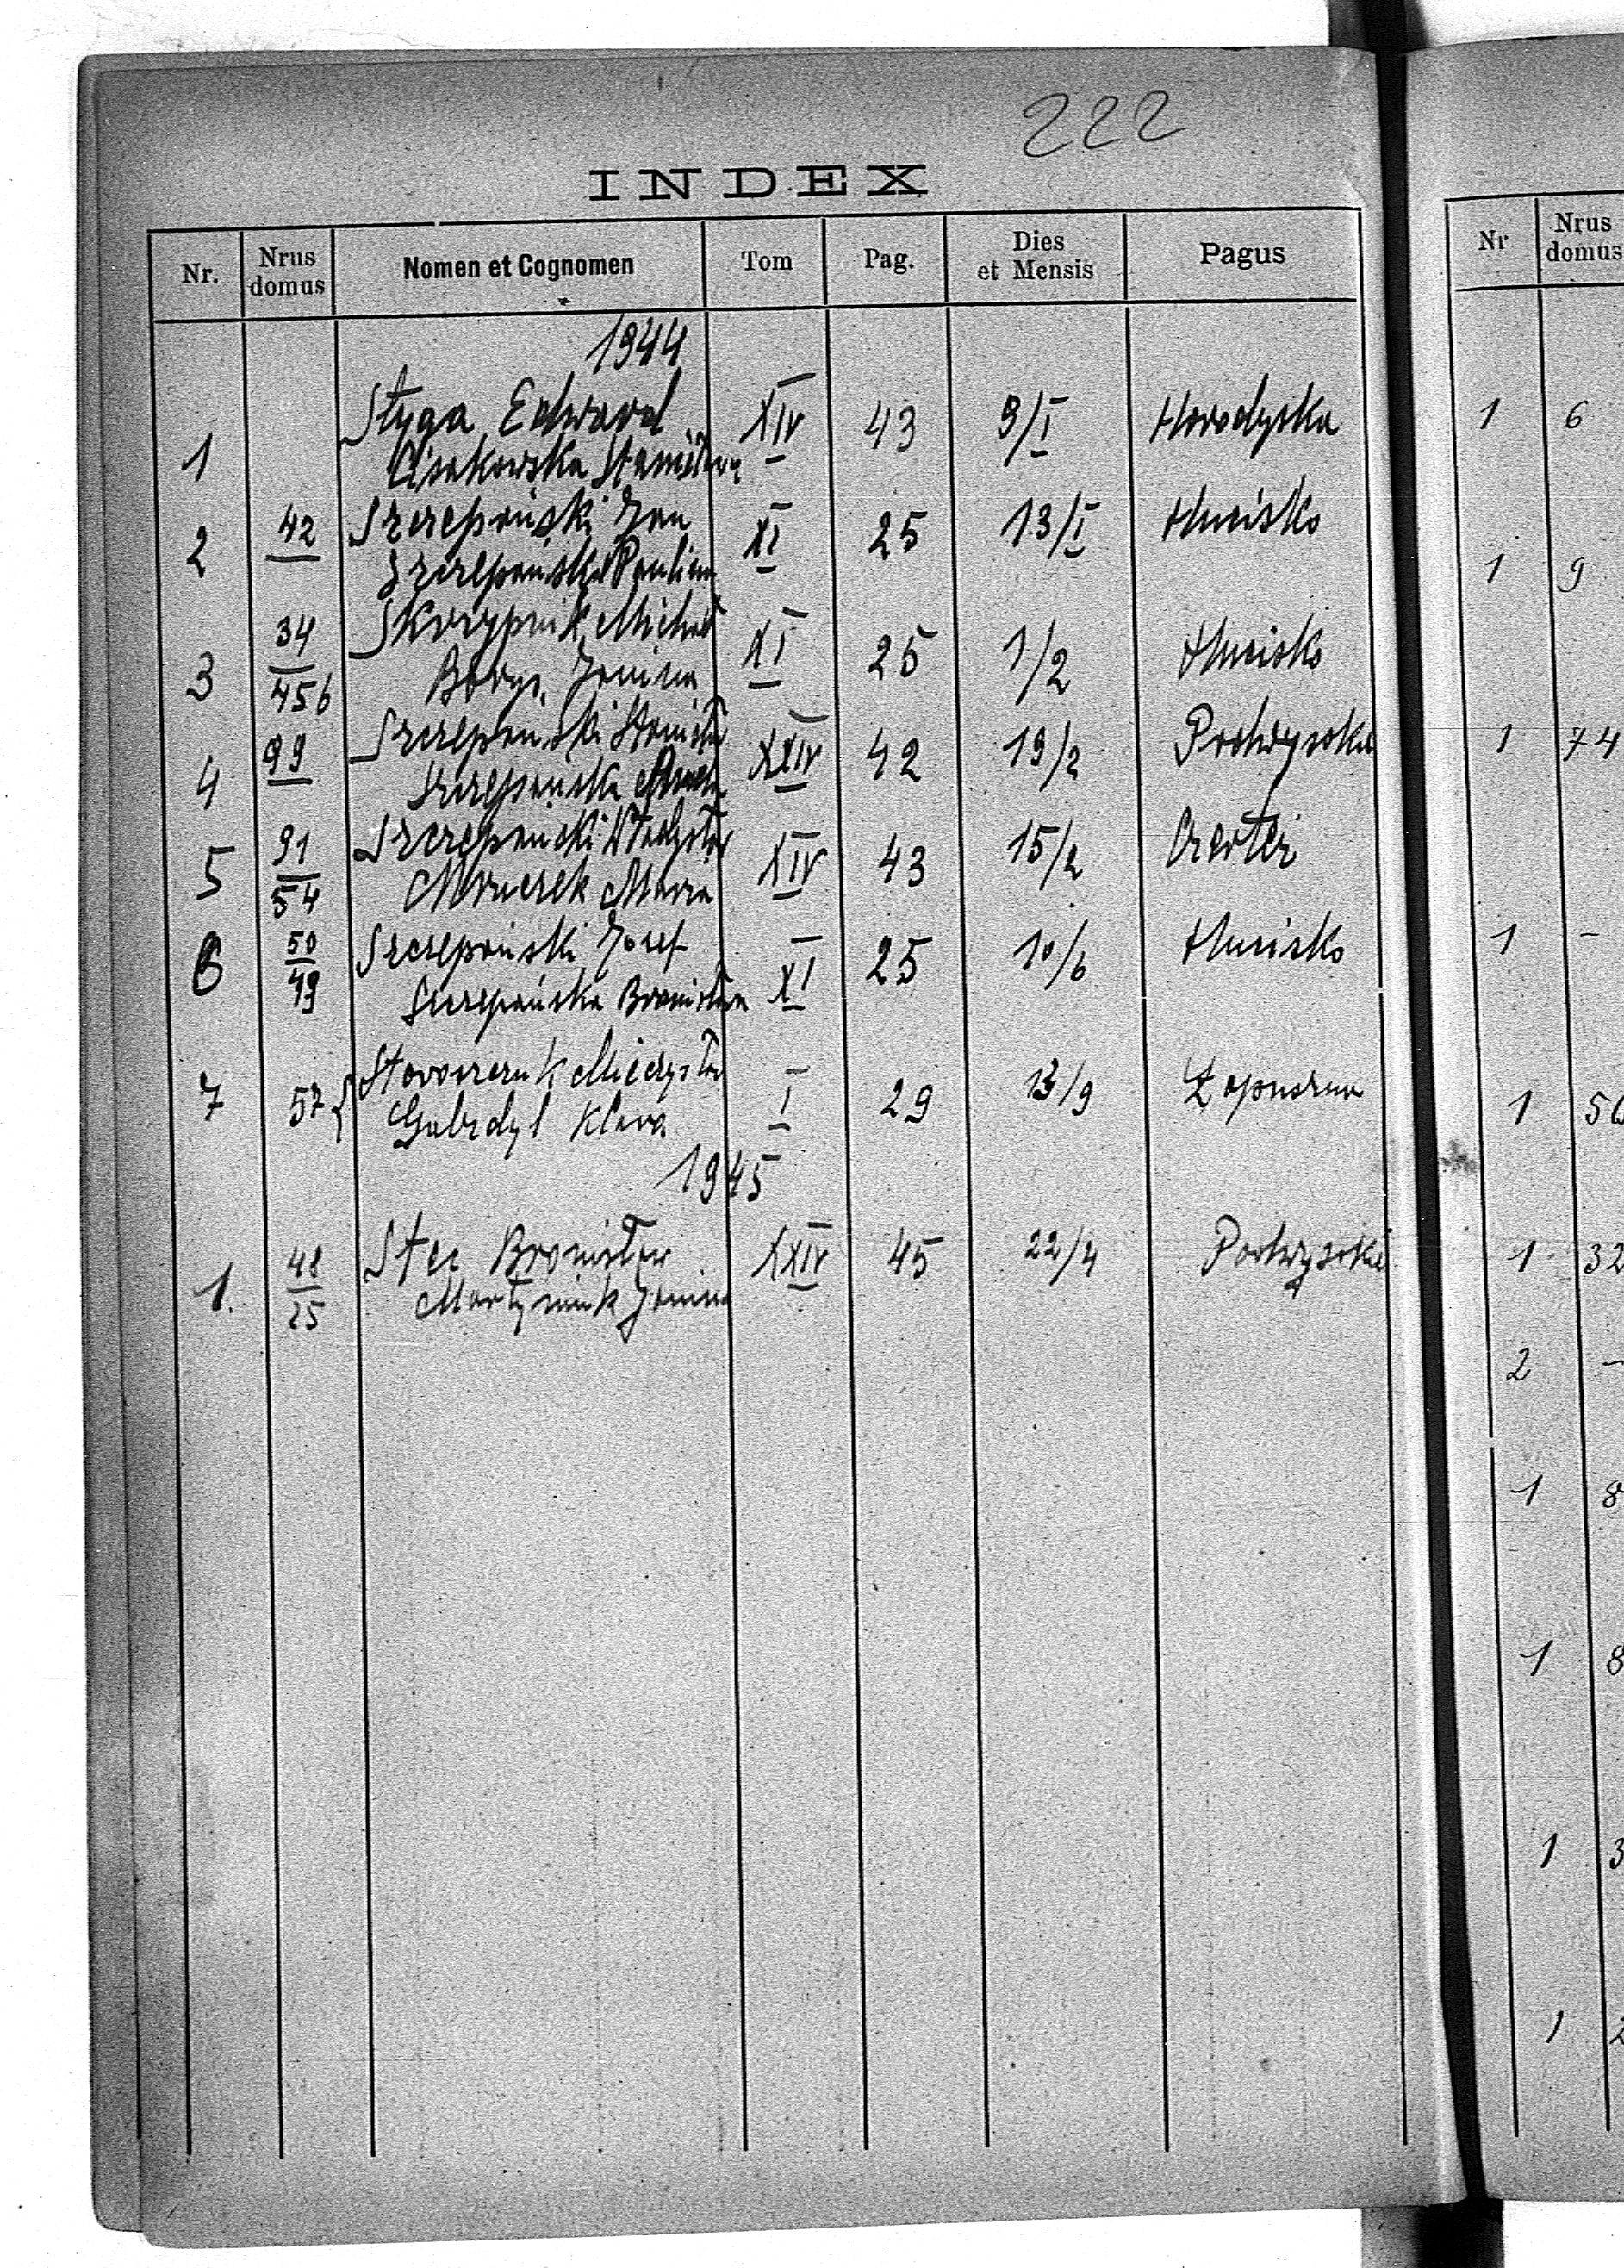 222
INDEX
Nr. Nrus domus Nomen et Cognomen Tom Pag. Dies et Mensis Pagus
1944
1 Styga Edward XIV 43 9/I Horodyska
Stanisława
2 42 Szczepański Jan XI 25 13/I Hucisko
Szczepańska Paulina
3 34 Skrzypnik Michał XI 25 1/2 Hucisko
456 Borys Janina
4 99 Szczepański Stanisław XXIV 42 19/2
Szczepańska
5 91 Szczepański Władysław XIV 43 15/2
54 Mruczek Maria
6 50 Szczepański Józef XI 25 10/6 Hucisko
49 Szczepańska Bronisława
7 57 Mieczysław I 29 13/9
Gabrdyl Klara
1945
1. 48 Stec Bronisław XXIV 45 22/4
25 Martyniuk Janina
Nr Nrus domus
1 6
1 9
1 74
1 -
1
1 32
2 -
1 8
1 8
1 3
1 2